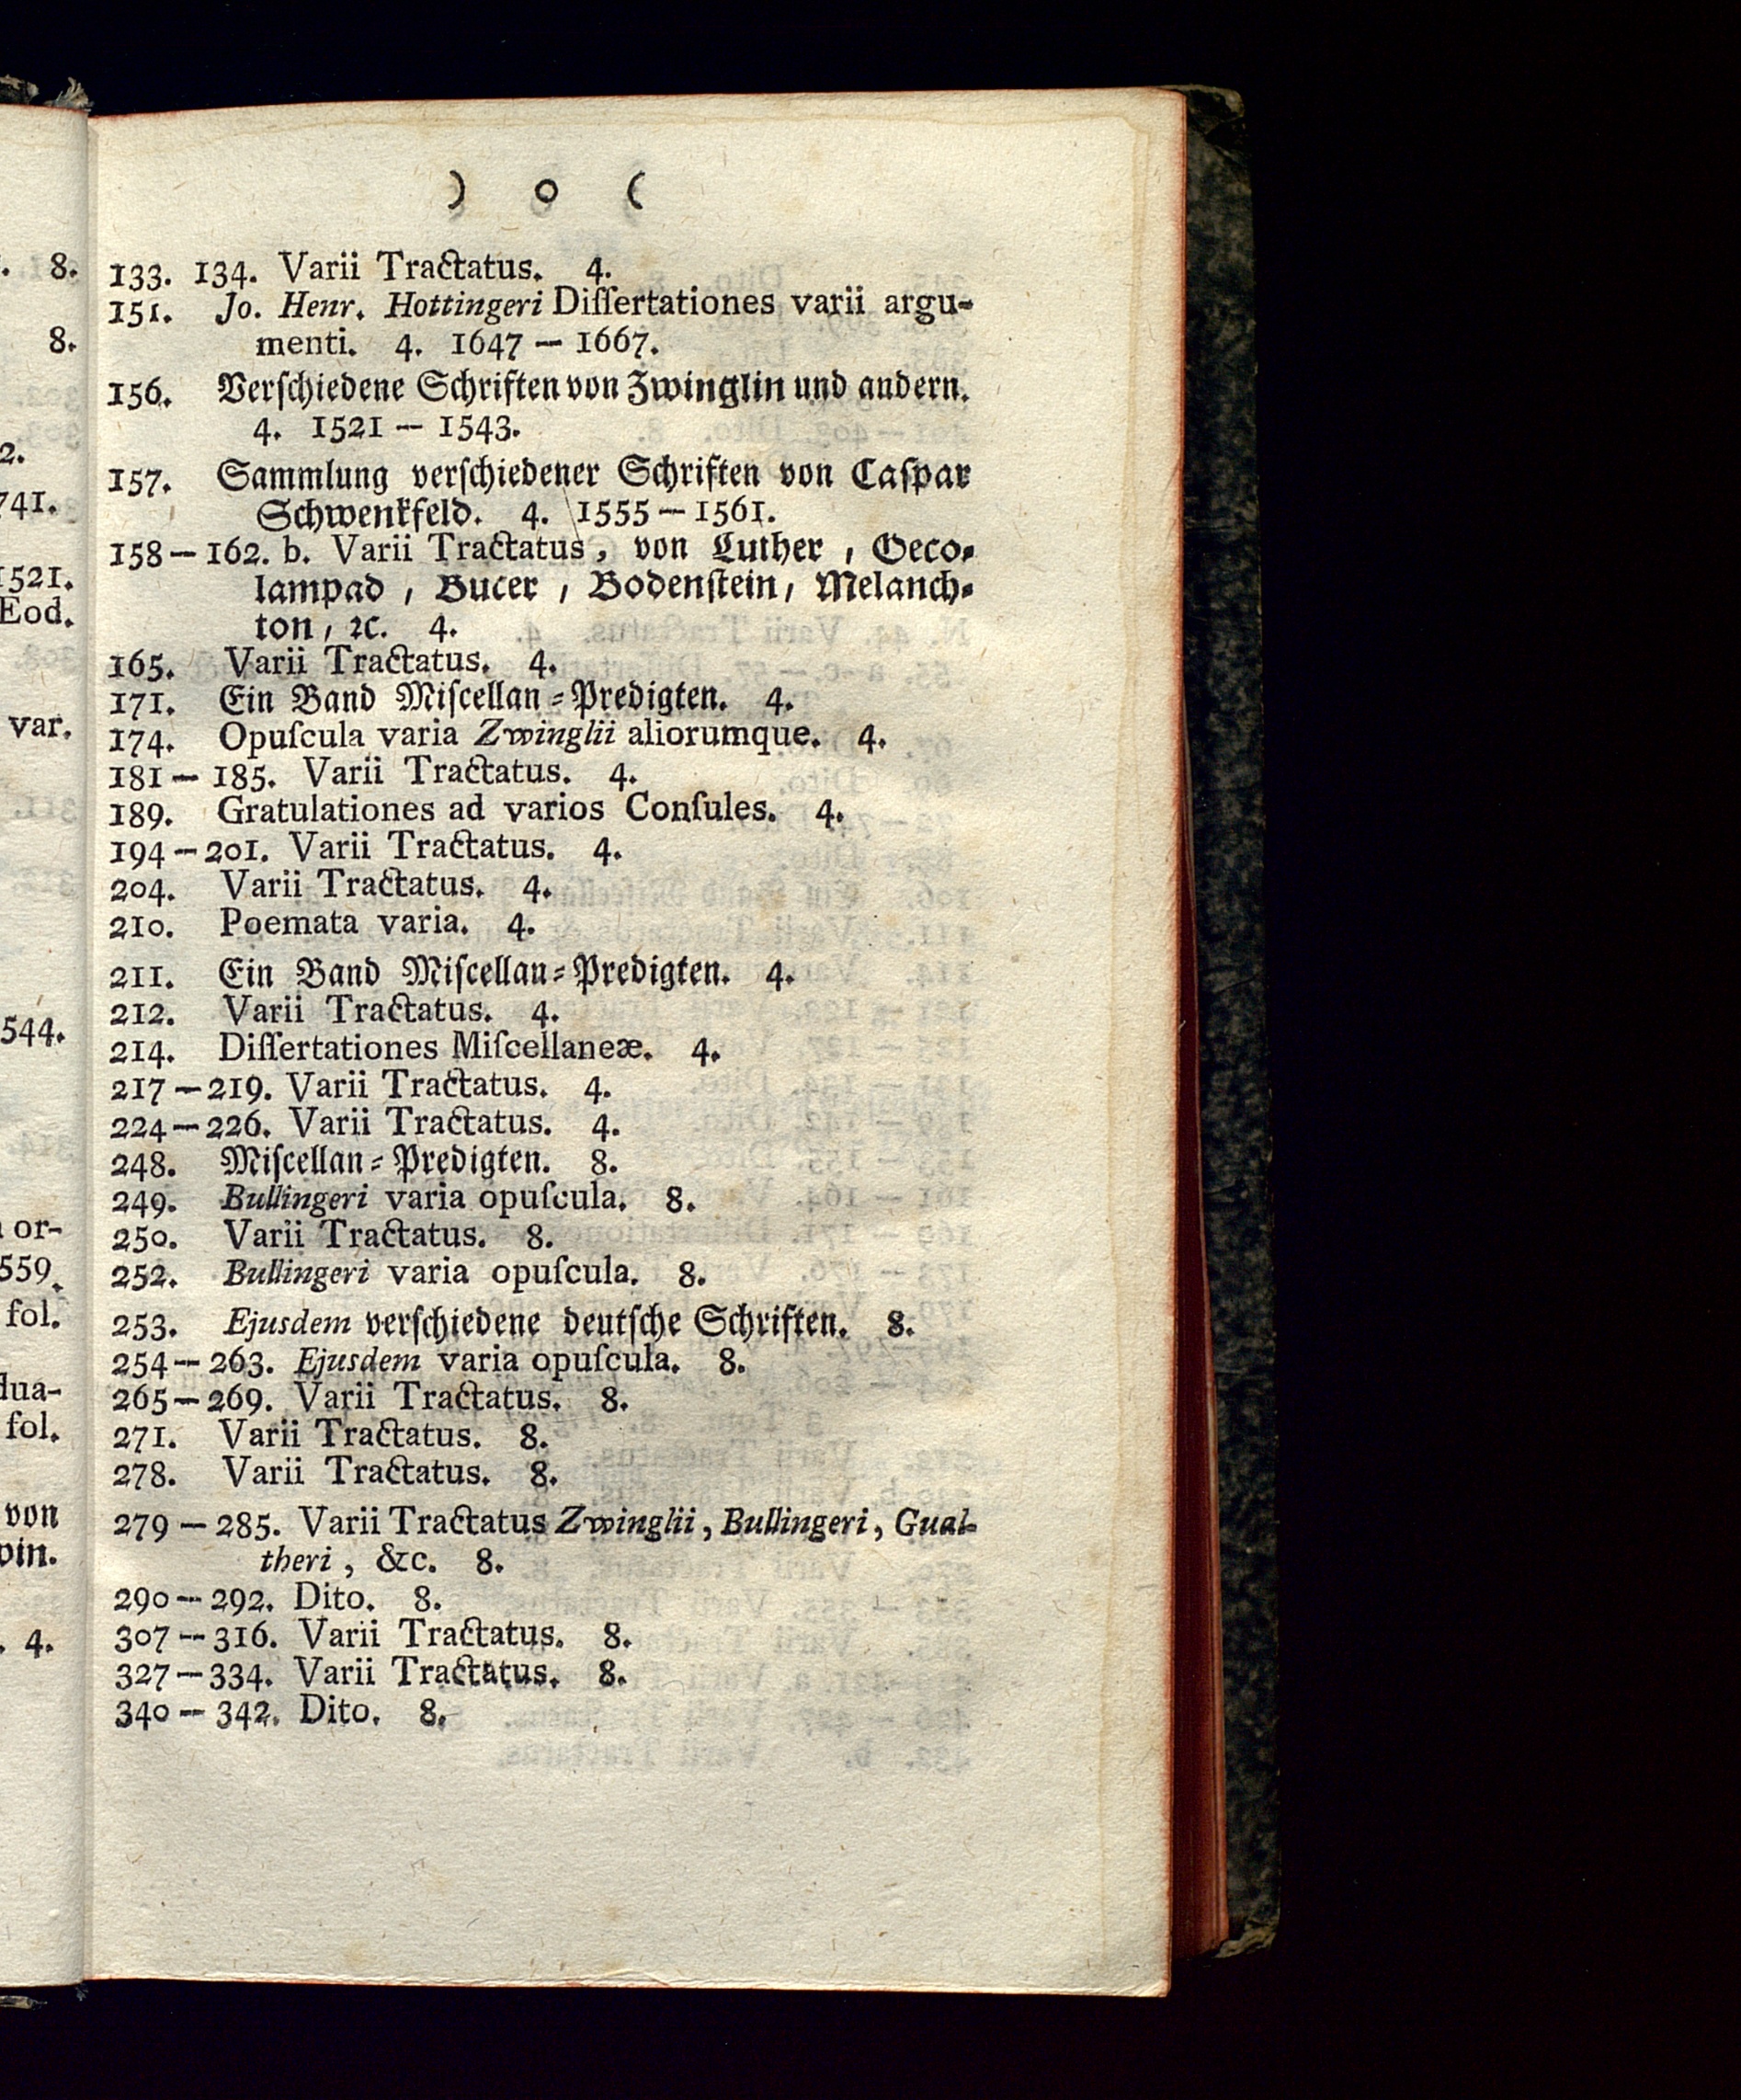 ) o (
133. 134. Varii Tractatus. 4.
151. Jo. Henr. Hottingeri Diſſertationes varii argu-
menti. 4. 1647 — 1667.
156. Verſchiedene Schriften von Zwinglin und andern.
4. 1521 — 1543.
157. Sammlung verſchiedener Schriften von Caſpar
Schwenkfeld. 4. 1555 — 1561.
158 — 162. b. Varii Tractatus, von Luther, Oeco-
lampad, Bucer, Bodenſtein, Melanch-
ton, ꝛc. 4.
165. Varii Tractatus. 4.
171. Ein Band Miſcellan-Predigten. 4.
174. Opuſcula varia Zwinglii aliorumque. 4.
181 — 185. Varii Tractatus. 4.
189. Gratulationes ad varios Conſules. 4.
194 — 201. Varii Tractatus. 4.
204. Varii Tractatus. 4.
210. Poemata varia. 4.
211. Ein Band Miſcellan-Predigten. 4.
212. Varii Tractatus. 4.
214. Diſſertationes Miſcellaneæ. 4.
217 — 219. Varii Tractatus. 4.
224 — 226. Varii Tractatus. 4.
248. Miſcellan-Predigten. 8.
249. Bullingeri varia opuſcula. 8.
250. Varii Tractatus. 8.
252. Bullingeri varia opuſcula. 8.
253. Ejusdem verſchiedene deutſche Schriften. 8.
254 — 263. Ejusdem varia opuſcula. 8.
265 — 269. Varii Tractatus. 8.
271. Varii Tractatus. 8.
278. Varii Tractatus. 8.
279 — 285. Varii Tractatus Zwinglii, Bullingeri, Gual-
theri, &c. 8.
290 — 292. Dito. 8.
307 — 316. Varii Tractatus. 8.
327 — 334. Varii Tractatus. 8.
340 — 342. Dito. 8.